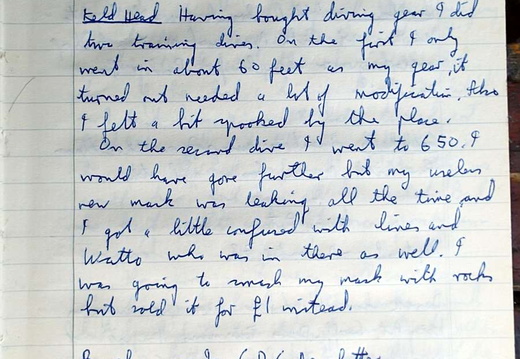 Keld Head Having bought diving gear I did
two training dives. On the first I only
went in about 60 feet as my gear, it
turned out needed a lot of modification. Also
I felt a bit spooked by the place.
On the second dive I went to 650. I
would have gone further but my useless
new mask was leaking all the time and
I got a little confused with lines and
Watto who was in there as well. I
was going to smash my mask with rocks
but sold it for £1 instead.